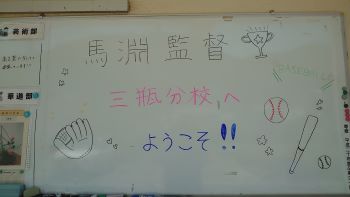 馬淵監督
三瓶分校へ
ようこそ!!
BASEBALL
美術部
華道部